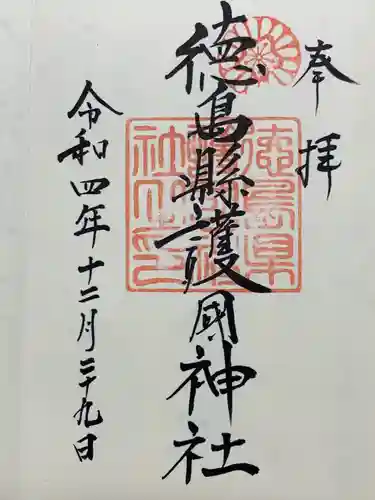 奉拝
徳島縣護國神社
令和四年十二月二十九日
徳島県
護國神
社之印